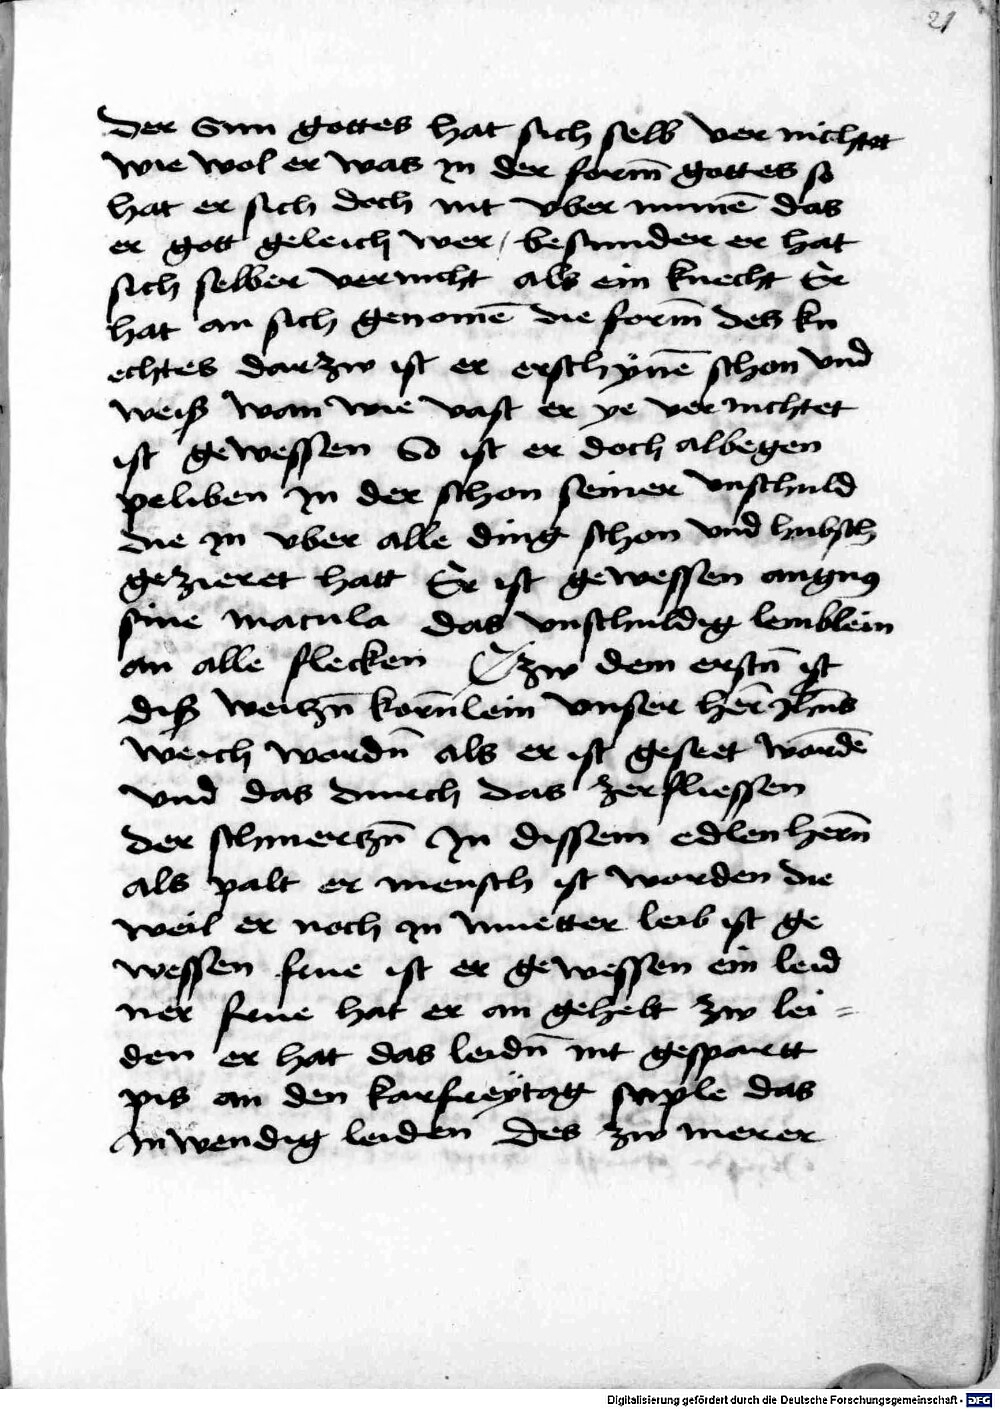 21
der Sun gottes hat sich selb ver nichtet
wie wol er was jn der form̄ gottes so
hat er sich doch nit vber numē das
er gott geleich wer / besunder er hat
sich selber vernicht als ein knecht Er
hat an sich genomē die form̄ des kn
echtes dar zw ist er erschÿnē schon vnd
weiß wan wie vast er ye ver nichtet
ist gewessen So ist er doch albegen
peliben jn der schon seiner vnschuld
die jn vber alle ding schon vnd hubsch
gezieret hatt Er ist gewessen angnus
sine macula das vnschuldig lemblein
an alle flecken Zw dem erstn̄ ist
diß weitzn̄ korn̄lein vnser her̄ Jh̄us
weich wordn̄ als er ist geseet wordē
vnd das durch das zerfliessen
der schmertzn̄ Jn dissem edlen hern̄
als palt er mensch ist worden die
weil er noch jn muetter leib ist ge
wessen frue ist er gewessen ein leid
ner frue hat er an gehebt zw lei =
den er hat das leidn̄ nit gespartt
pis an den karfreÿtag the das
Jnwendig leiden Des zw merer
Digitalisierung gefördert durch die Deutsche Forschungsgemeinschaft - DFG